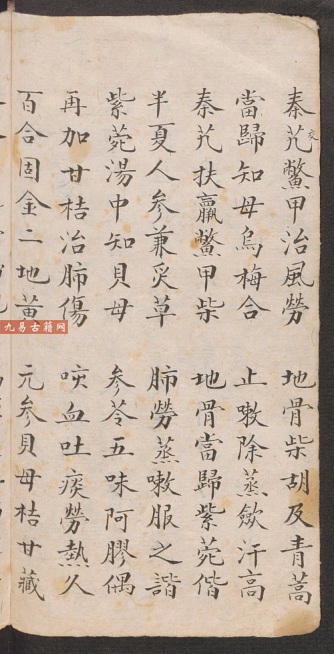 秦艽鱉甲治風勞 地骨柴胡及青蒿
當歸知母烏梅合 止嗽除蒸斂汗高
秦艽扶羸鱉甲柴 地骨當歸紫菀偕
半夏人參兼炙草 肺勞蒸嗽服之諧
紫菀湯中知貝母 參苓五味阿膠偶
再加甘桔治肺傷 咳血吐痰勞熱久
百合固金二地黃 元參貝母桔甘藏
九易古籍网